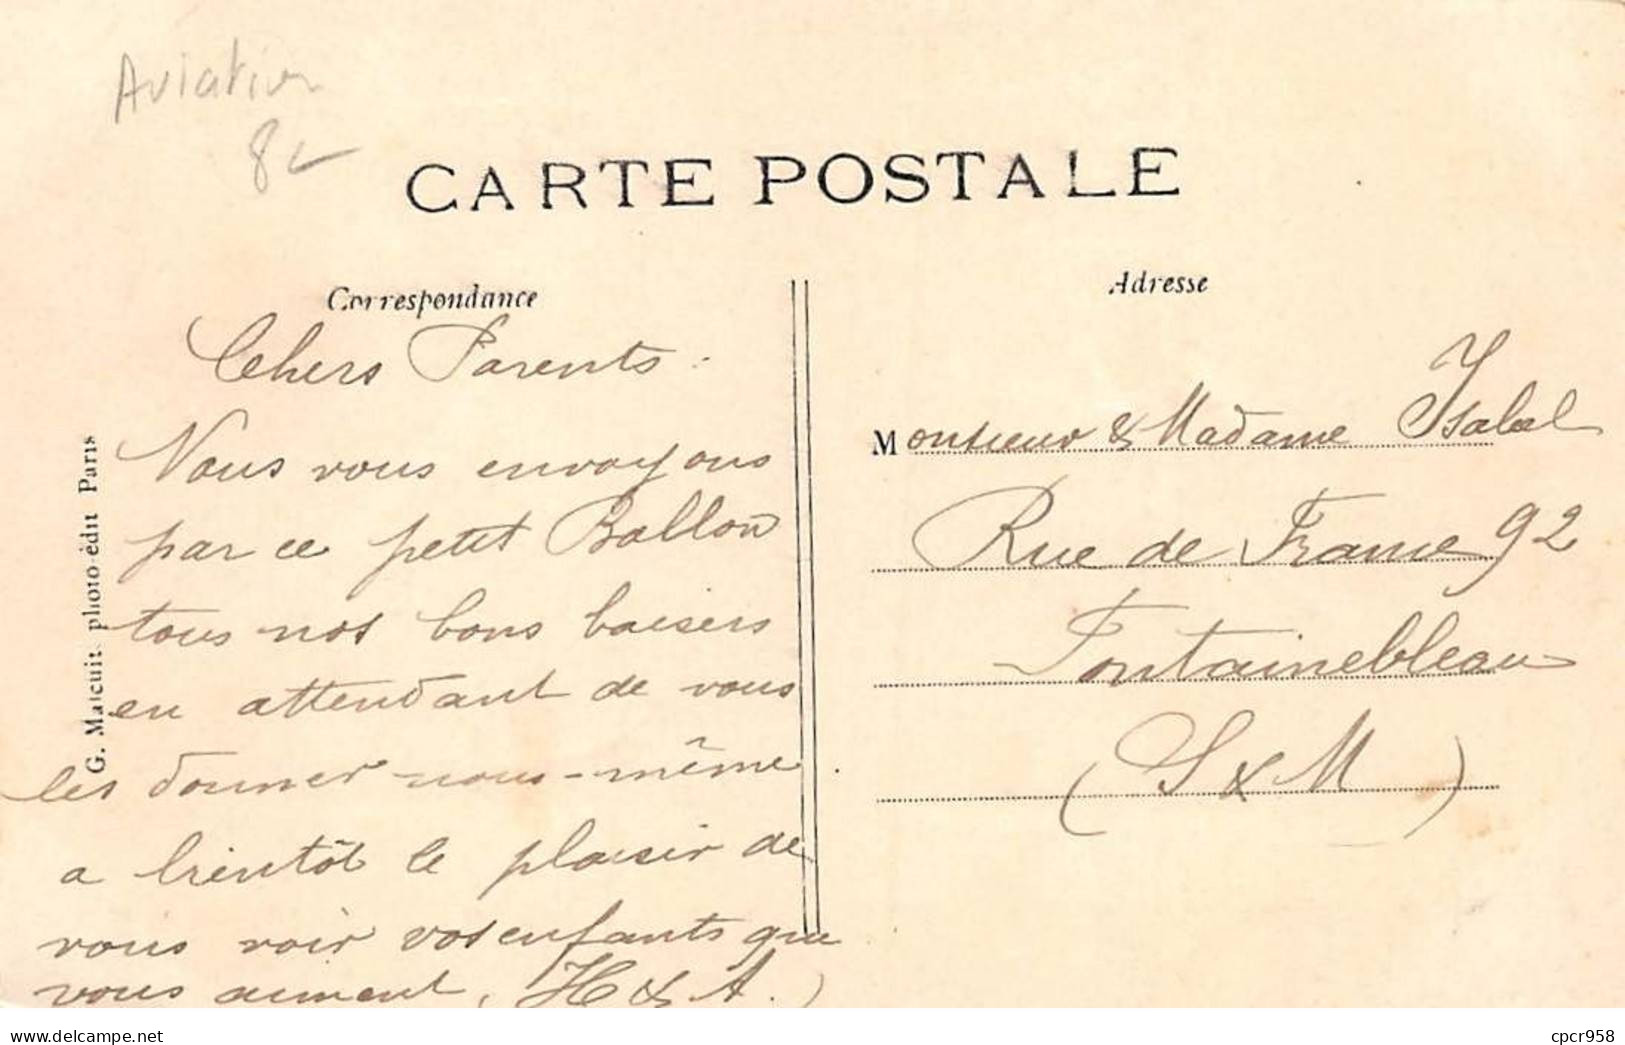 Aviation
8
CARTE POSTALE
Correspondance
Adresse
Chers Parents :
Nous vous envoyons
par ce petit Ballon
tous nos bons baisers
en attendant de vous
les donner nous-même
a bientôt le plaisir de
vous voir vos enfants que
vous aiment, H & A.
Monsieur & Madame Isabel
Rue de France 92
Fontainebleau
(S & M)
G. Malcuit photo-édit Paris
delcampe.net
cpcr958